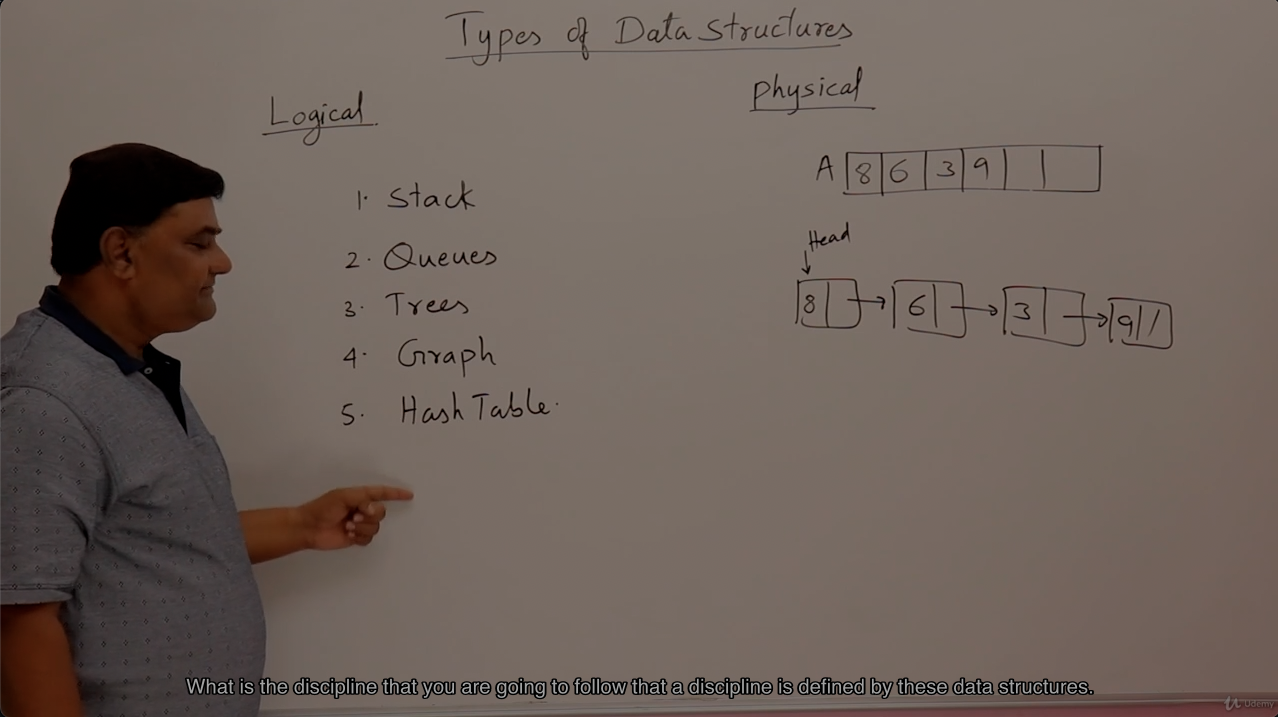 Types of Data Structures
Logical
1. Stack
2. Queues
3. Trees
4. Graph
5. Hash Table.
Physical
A 8 6 3 9
Head
8 6 3 9 /
What is the discipline that you are going to follow that a discipline is defined by these data structures.
Udemy